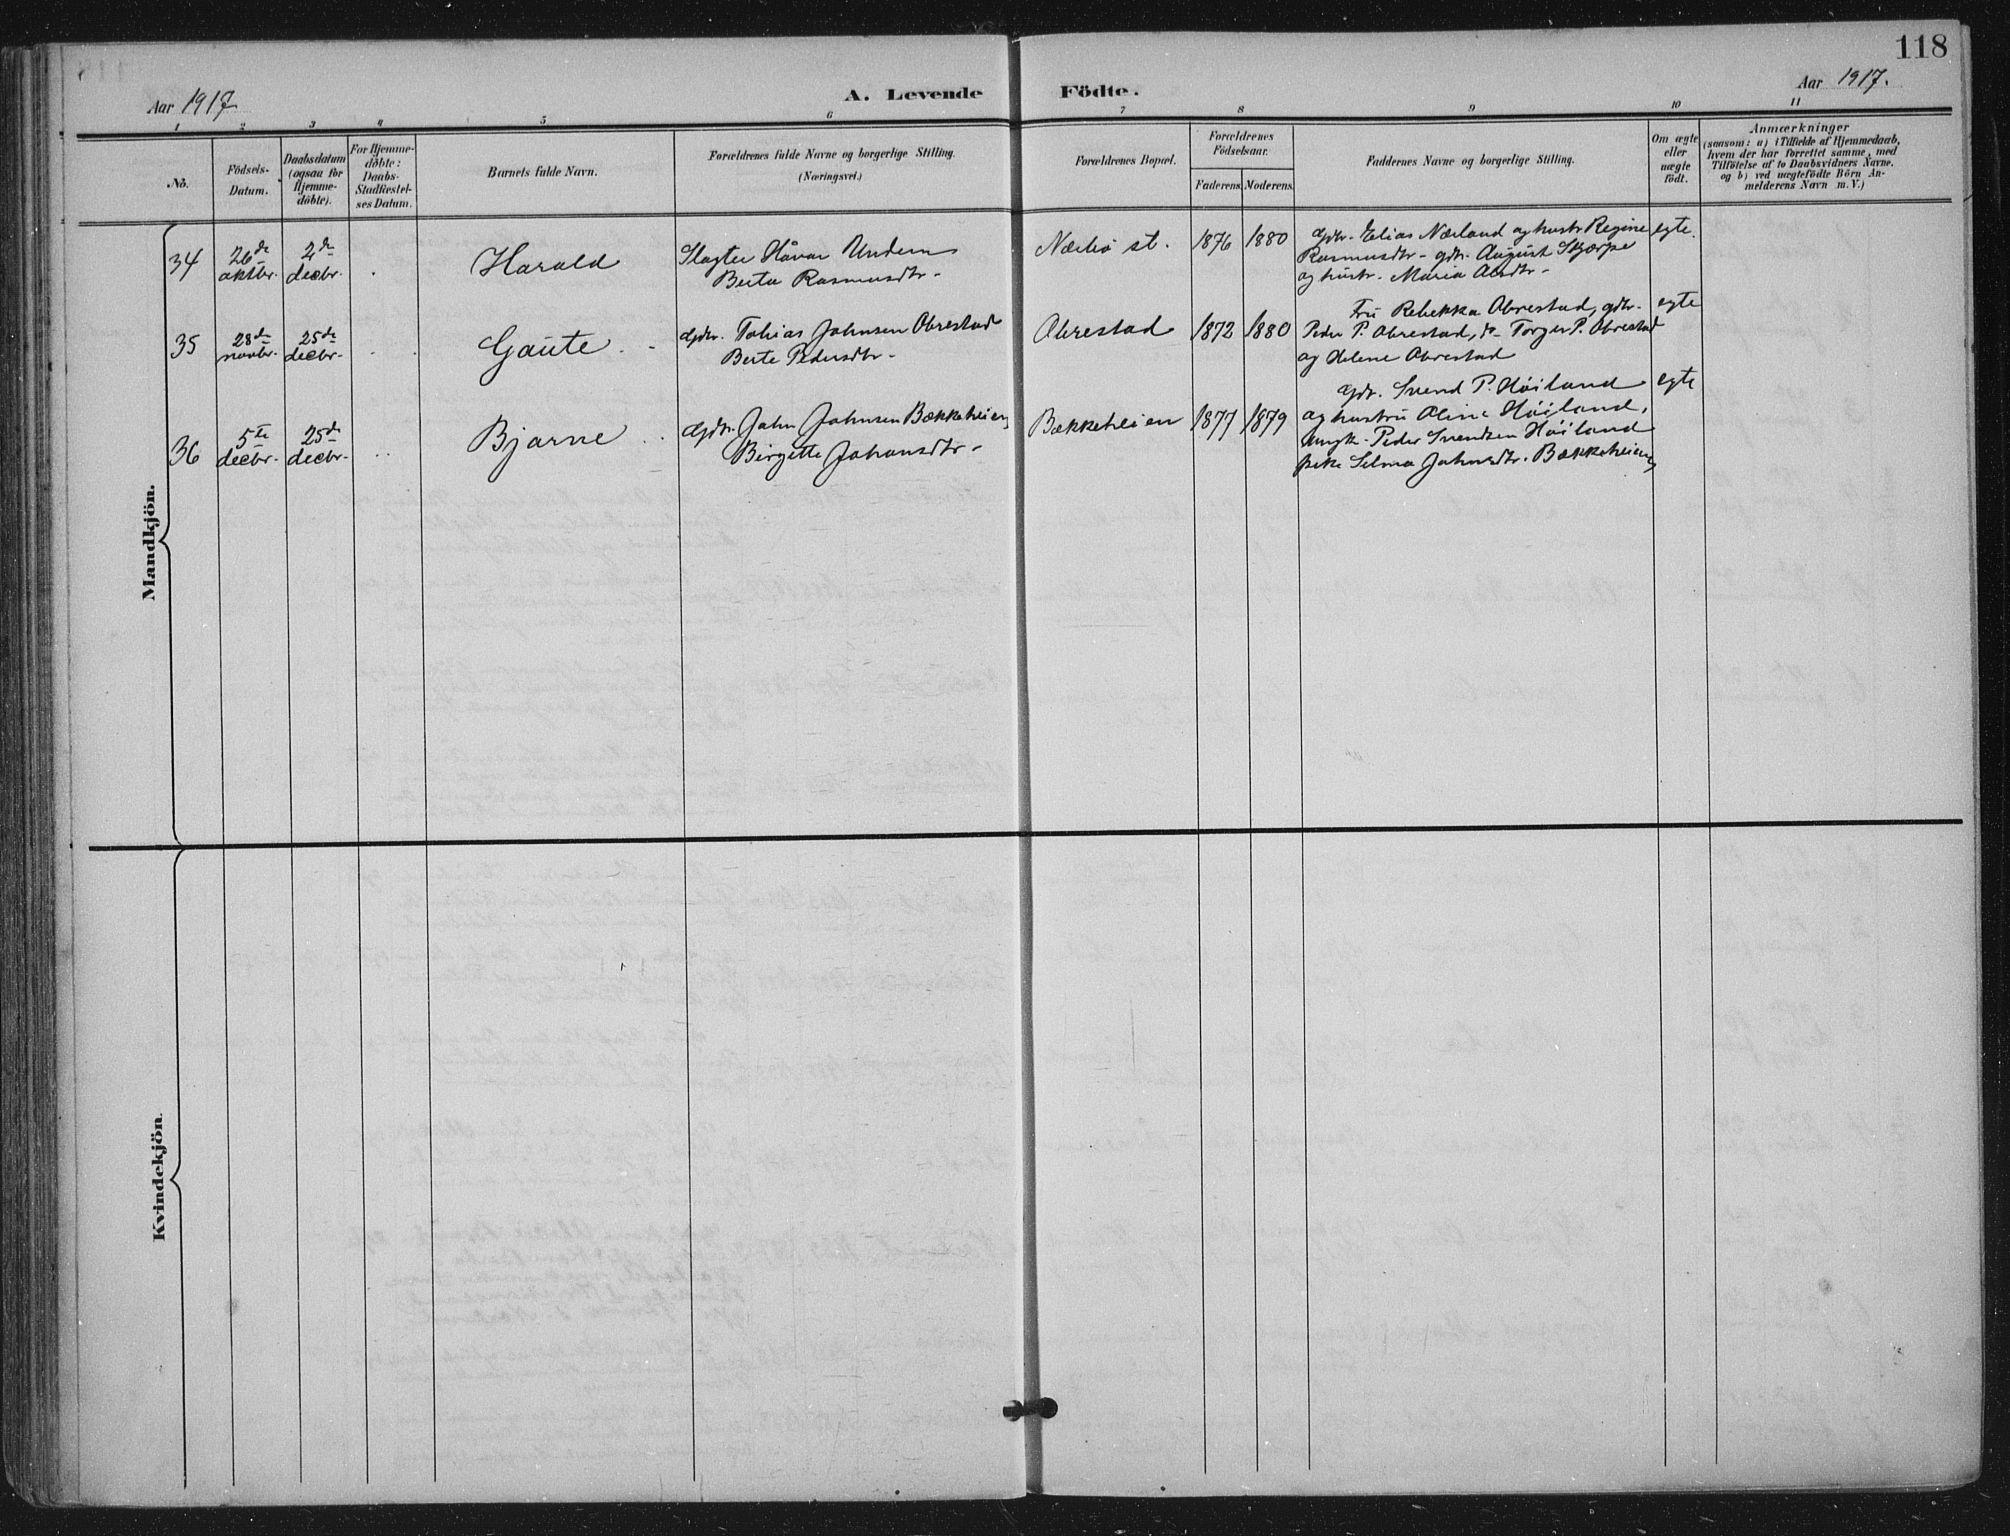 118
Aar 1917
A. Levende Födte.
Aar 1917.
1 2 3 4 5 6 7 8 9 10 11
No.
Födsels-
Datum.
Daabsdatum
(ogsaa for
Hjemme-
döbte).
For Hjemme-
döbte:
Daabs-
Stadfæstel-
ses Datum.
Barnets fulde Navn.
Forældrenes fulde Navne og borgerlige Stilling.
(Næringsvei.)
Forældrenes Bopæl.
Forældrenes
Födselsaar.
Faderens. Moderens.
Faddernes Navne og borgerlige Stilling.
Om ægte
eller
uægte
födt.
Anmærkninger
(saasom: a) i Tilfælde af Hjemmedaab,
hvem der har forrettet samme, med
Tilföielse af to Daabsvidners Navne,
og b) ved uægtefödte Börn An-
melderens Navn m. V.)
Mandkjön.
34
26de
oktbr.
2de
decbr.
Harald
Slagter Håvar Undem
Berta Rasmusdtr-
Nærbö st.
1876 1880
Gdr. Elias Nærland og hustr Regine
Rasmusdtr - gdr. August Skjærpe
og hustr. Maria
egte.
35
28de
novbr.
25de
decbr.
Gaute
Gdr. Tobias Johnsen Obrestad
Berte Pedersdtr-
Obrestad
1872 1880
Fru Rebekka Obrestad, gdr.
Peder P. Obrestad, do Torger P. Obrestad
og Helene Obrestad
egte
36
5te
decbr.
25de
decbr.
Bjarne
Gdr. John Johnsen Bækkeheien
Birgitte Johansdtr-
Bækkeheien
1877 1879
Gdr. Svend P. Höiland
og hustru Oline Höiland,
ungk. Peder Svendsen Höiland
pike Selma Johnsdtr. Bækkeheien
egte
Kvindekjön.